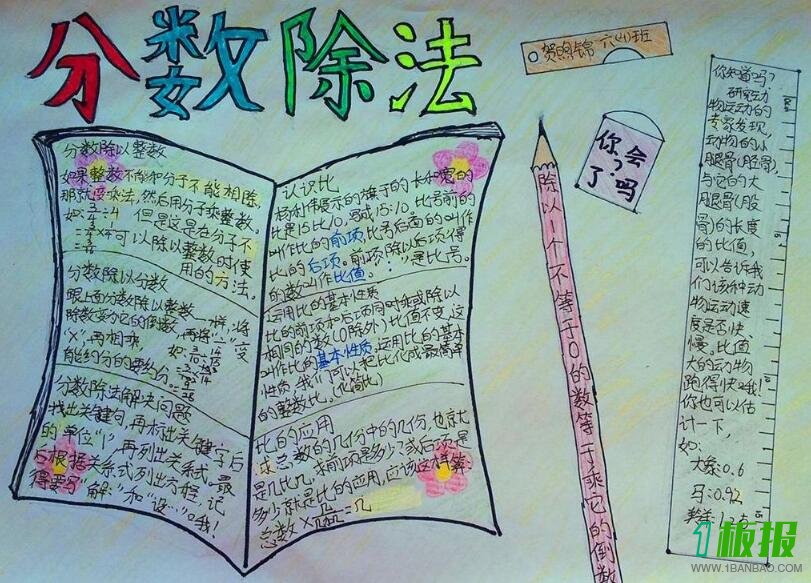 分数除法
贺 锦 六(4)班
分数除以整数
如果整数不能和分子不能相除,
那就 乘法,然后用分子乘整数。
如: ÷4 但是这是在分子不
可以除以整数时使
用的方法。
分数除以分数
跟上面分数除以整数一样,将
除数变分它的倒数,再将“÷”变
“×”,再相乘 如:
能约分的要约分
分数除法解决问题
找出关键句,再标出关键字后
的“单位“1”,再列出关系式。最
后根据关系式列出方程,记
得要写“解:”和“设…”哦!
认识比
杨利伟展示的旗子的长和宽的
比是15比10,写成15:10,比号前的
叫作比的前项,比号后面的叫作
比的后项。前项除以后项得
的数叫作比值。“:”是比号。
运用比的基本性质
比的前项和后项同时乘或除以
相同的数(0除外)比值不变,这
叫作比的基本性质,运用比的基本
性质,我们可以把比化成最简单
的整数比。(化简比)
比的应用
求总数的几份中的几份,也就
是几比几,求前项是多少?或后项是
多少就是比的应用,应该这样算:
总数× =几
除以一个不等于0的数等于乘它的倒数
你会
了吗
?
你知道吗?
研究动
物运动的
专家发现,
动物的小
腿骨(胫骨)
与它的大
腿骨(股
骨)的长度
的比值,
可以告诉我
们该种动
物运动速
度是否快、
慢。比值
大的动物
跑得快哦!
你也可以估
计一下,
如:
大象:0.6
马:0.92
羚羊:1.25
1板报
WWW.1BANBAO.COM